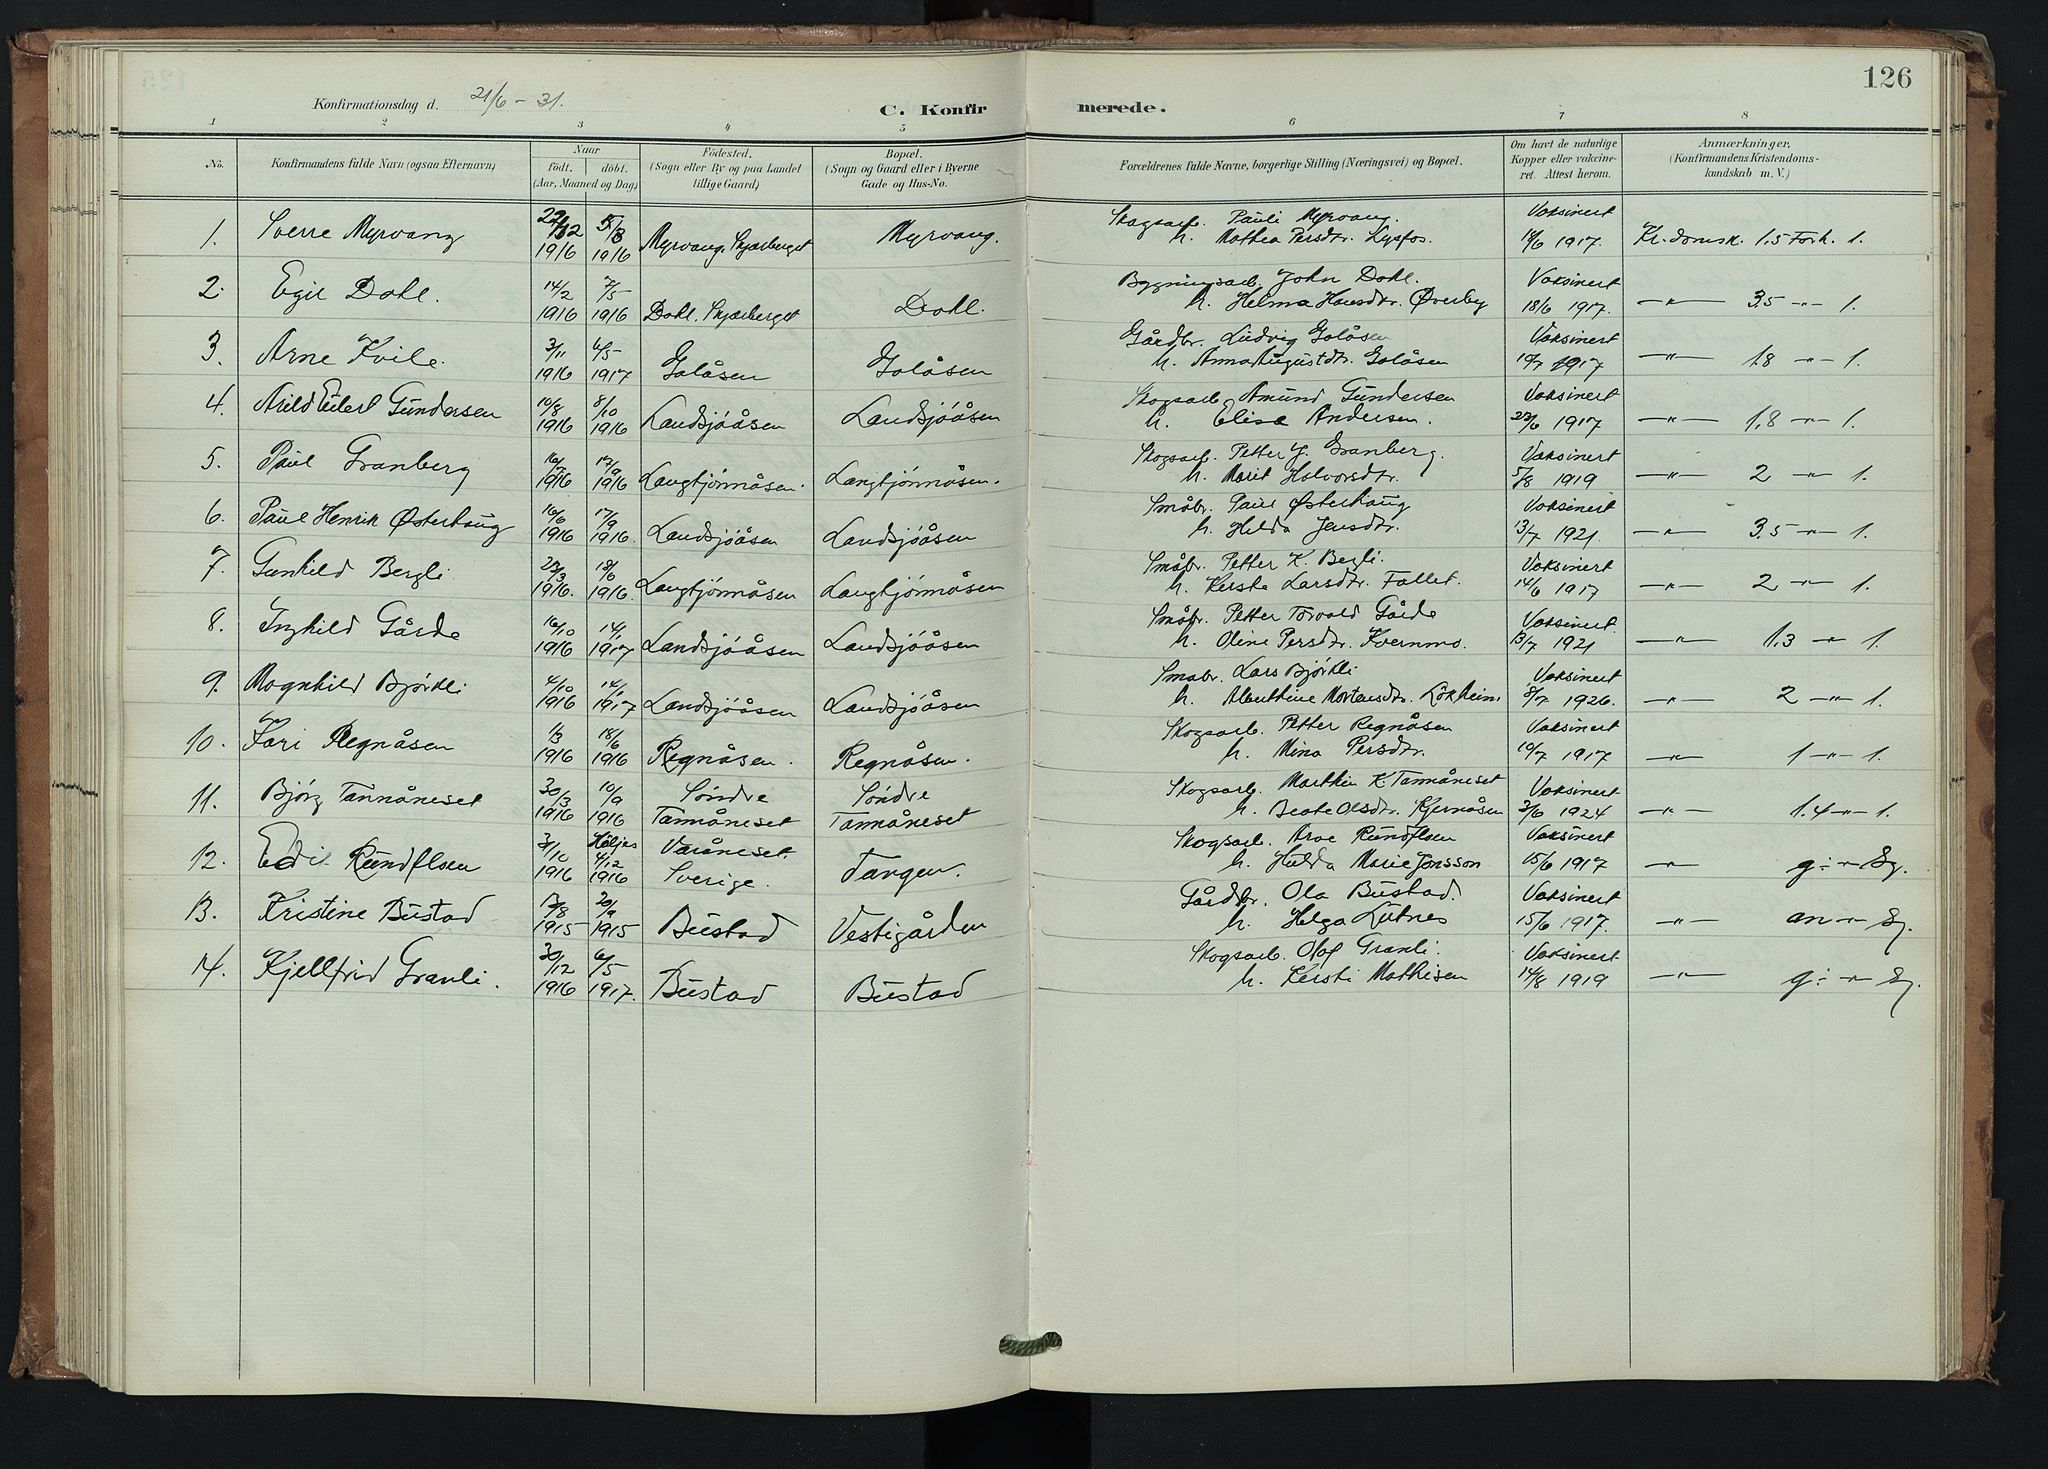 126
Konfirmationsdag d. 21/6 - 31.
C. Konfirmerede.
1 2 3 4 5 6 7 8
No. Konfirmandens fulde Navn (ogsaa Efternavn) Naar født. døbt. (Aar, Maaned og Dag) Fødested. (Sogn eller By og paa Landet tillige Gaard) Bopæl. (Sogn og Gaard eller i Byerne Gade og Hus-No. Forældrenes fulde Navne, borgerlige Stilling (Næringsvei) og Bopæl. Om havt de naturlige Kopper eller vakcineret. Attest herom. Anmærkninger, (Konfirmandens Kristendomskundskab m. V.)
1. Sverre Myrvang 1916 1916 Myrvang, Skjærberget Myrvang. Skogsarb. Pauli Myrvang. h. Mathea Persdtr. Lysfos. Vaksinert 1917. Kr.domsk. 1,5 Forh. 1.
2. Egil Dahl. 14/2 1916 7/5 1916 Dahl. Skjærberget Dahl. Bygningsarb. John Dahl. h. Helma Hansdtr. Øverby Vaksinert 18/6 1917. —"— 3,5 -"- 1.
3. Arne Kvile. 3/11 1916 6/5 1917 Galåsen Galåsen Gårdbr. Ludvig Galåsen h. Anna Augustdtr. Galåsen Vaksinert 10/7 1917 —"— 1,8 -"- 1.
4. Arild Eilert Gundersen 10/8 1916 8/10 1916 Landsjøåsen Landsjøåsen Skogsarb. Amund Gundersen h. Elise Andersen. Vaksinert 22/6 1917 —"— 1,8 -"- 1.
5. Paul Granberg 1916 17/9 1916 Langtjønnåsen. Langtjønnåsen. Skogsarb. Petter J. Granberg. h. Marit Halvorsdtr. Vaksinert 5/8 1919 —"— 2 -"- 1.
6. Paul Henrik Østerhaug 16/6 1916 17/9 1916. Landsjøåsen Landsjøåsen Småbr. Paul Østerhaug h. Hilda Jensdtr. Vaksinert 13/7 1921. —"— 3,5 -"- 1.
7. Gunhild Bergli. 23/3 1916. 18/6 1916. Langtjønnåsen Langtjønnåsen Småbr. Petter K. Bergli. h. Kerste Larsdtr. Fallet. Vaksinert 14/6 1917 —"— 2 -"- 1.
8. Inghild Gårde 16/10 1916 14/1 1917 Landsjøåsen Landsjøåsen Småbr. Petter Torvald Gårde h. Oline Persdtr. Kvernmo. Vaksinert. 13/7 1921 —"— 1,3 -"- 1.
9. Magnhild Bjørkli 4/10 1916 14/1 1917 Landsjøåsen Landsjøåsen Småbr. Lars Bjørkli h. Mortansdtr. Vaksinert 1926. —"— 2 -"- 1.
10. Kari Regnåsen 1/3 1916 18/6 1916 Regnåsen. Regnåsen. Skogsarb. Petter Regnåsen h. Mina Persdtr. Vaksinert 10/7 1917 —"— 1 -"- 1.
11. Bjørg Tannåneset 30/3 1916 10/9 1916 Søndre Tannåneset Søndre Tannåneset Skogsarb. Marthin K. Tannåneset h. Beate Olsdtr. Kjernåsen Vaksinert 3/6 1924 —"— 1.4 -"- 1.
12. Edi Rundfloen 3/10 1916 Höljes 4/12 1916 Varåneset. Sverige. Tangen. Skogsarb. Arve Rundfloen h. Hulda Marie Jonsson Vaksinert 15/6 1917 —"— g: -"- Sg.
13. Kristine Bustad 1915 20/9 1915 Bustad Vestigården Gårdbr. Ola Bustad. h. Helga Lutnes Vaksinert 15/6 1917. —"— an -"- Sg.
14. Kjellfrid Granli. 30/12 1916 6/5 1917. Bustad Bustad Skogsarb. Olaf Granli. h. Kersti Mathisen Vaksinert 14/8 1919 —"— g: -"- Sg.